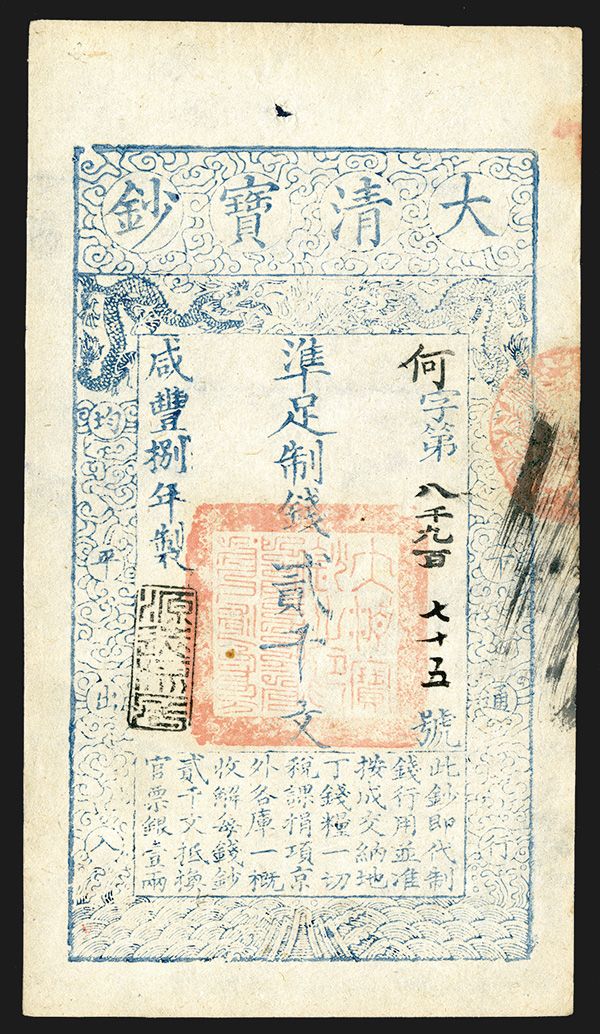 大清寶鈔
何字第八千九百七十五號
準足制錢貳千文
咸豐捌年製
天下通行
均平出入
此鈔即代制
錢行用並准
按成交納地
丁錢糧一切
稅課捐項京
外各庫一概
收解每錢鈔
貳千文抵換
官票銀壹兩